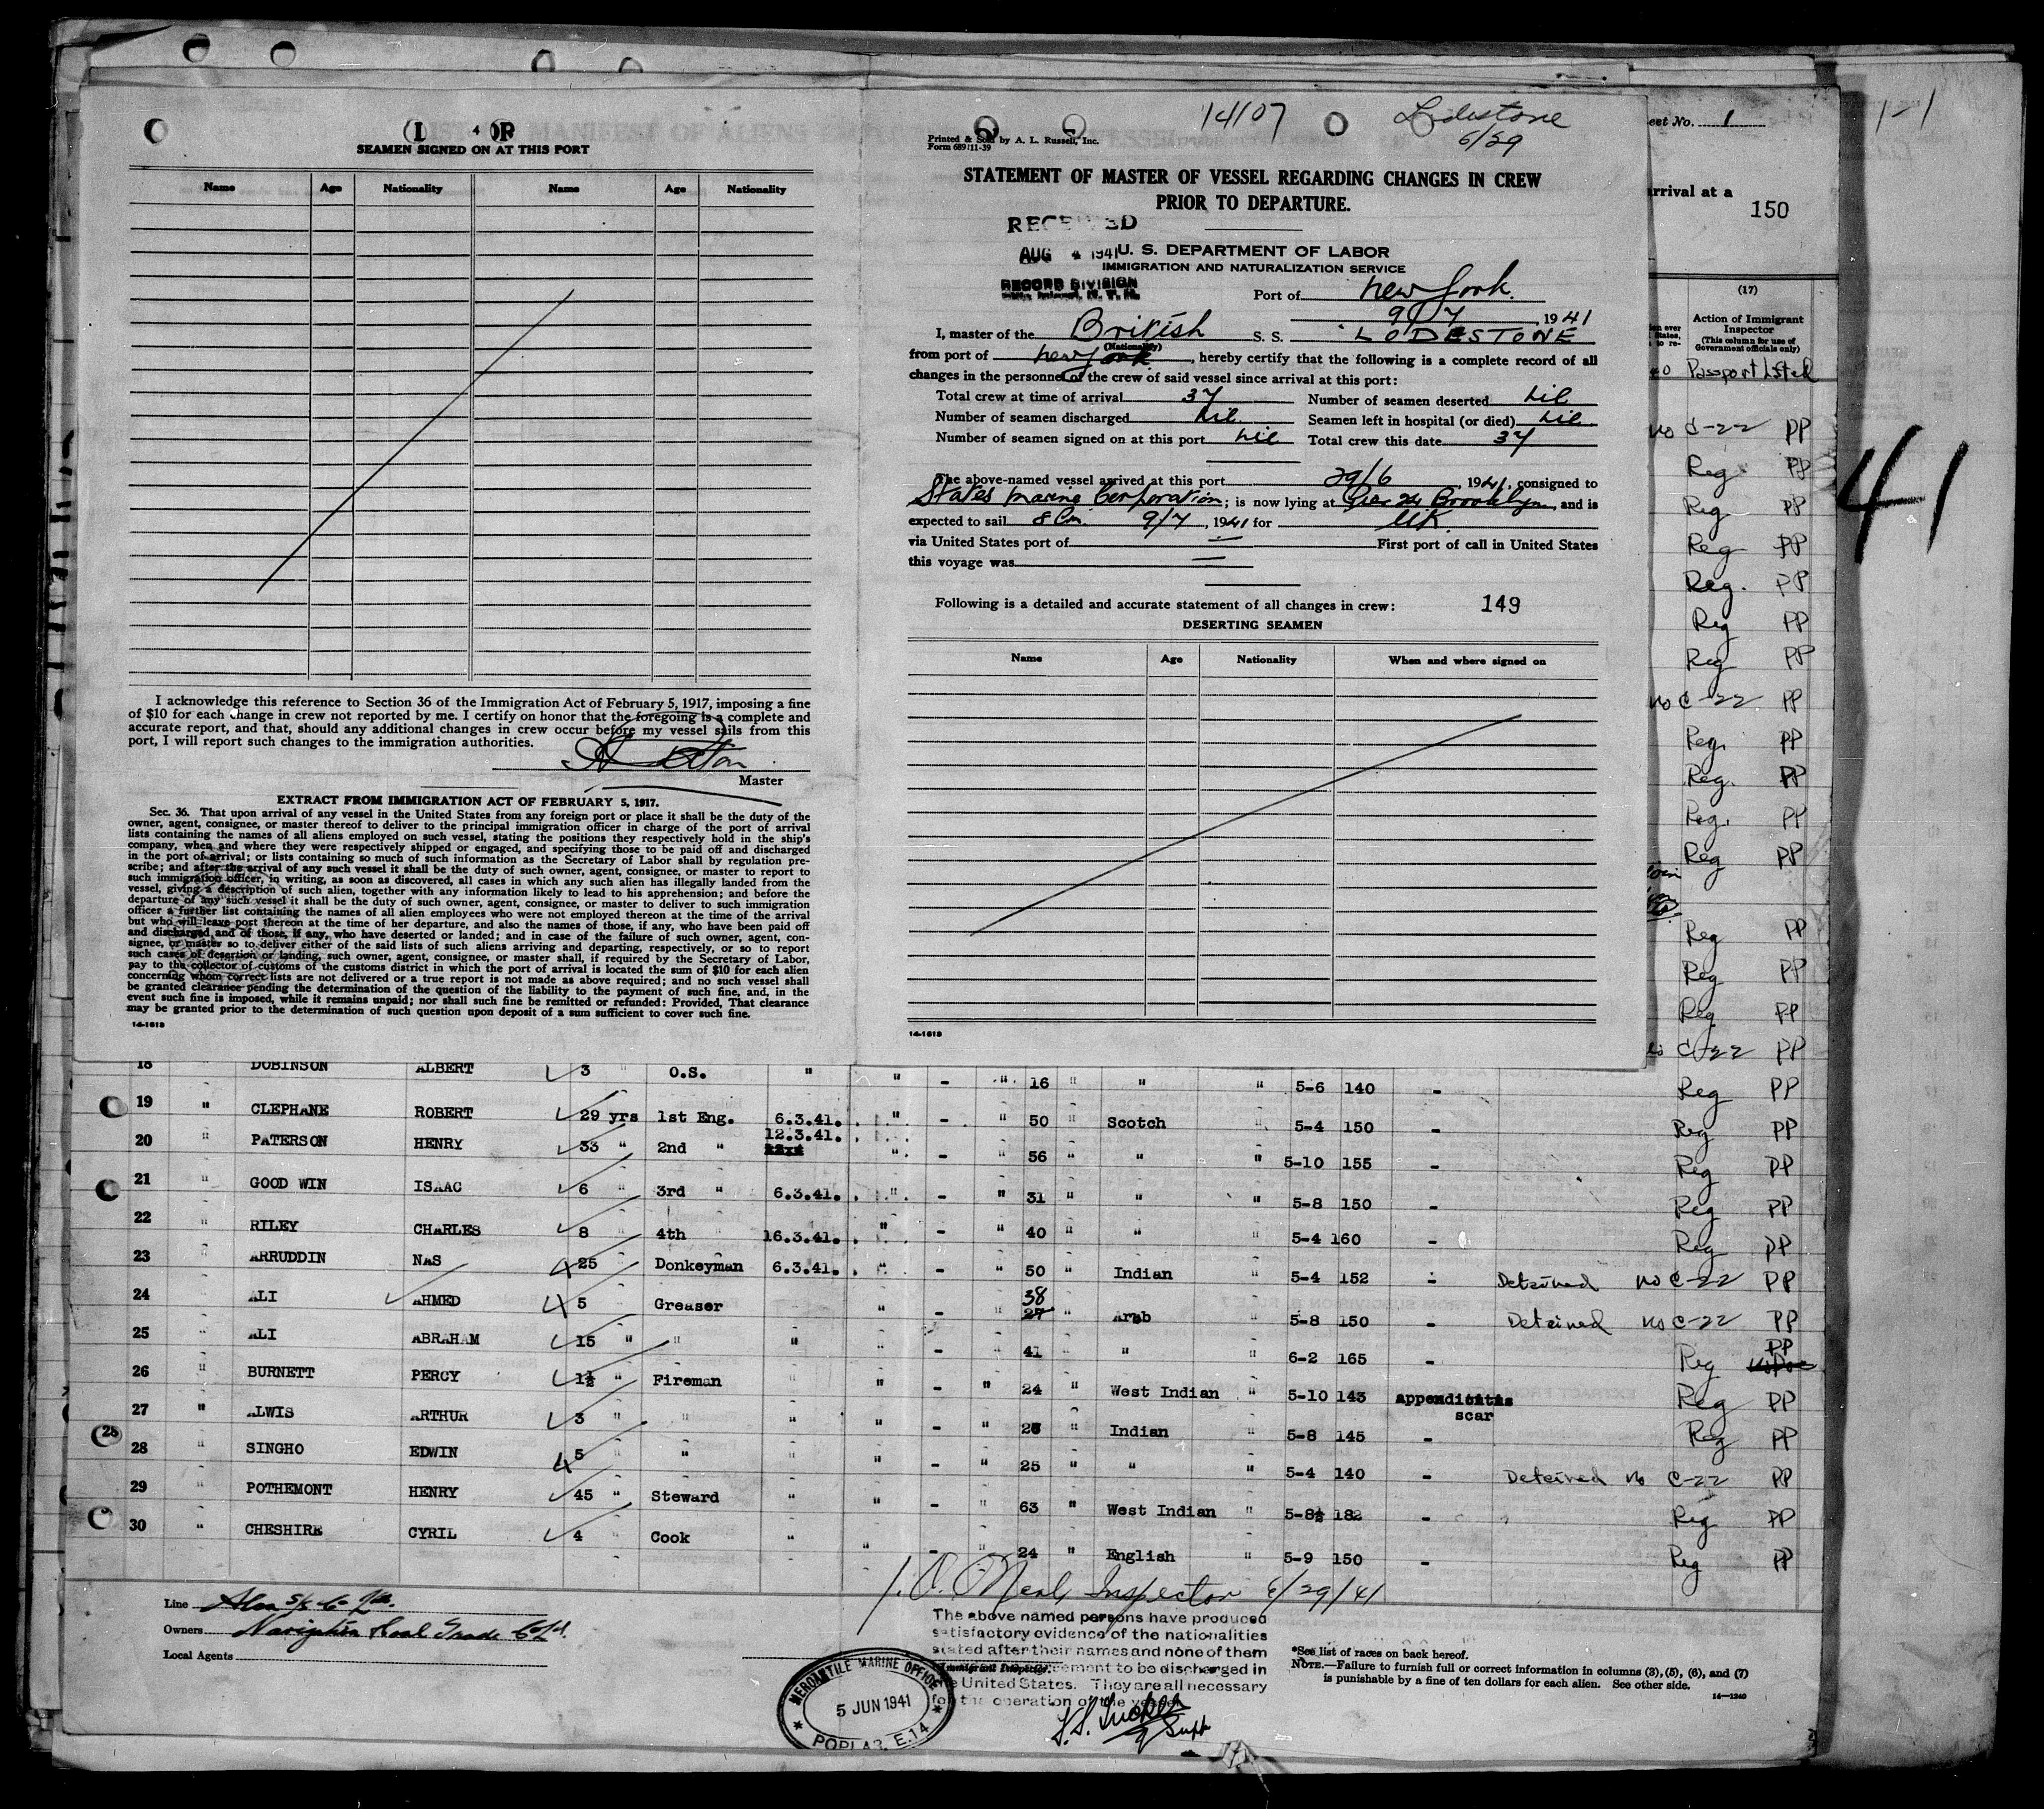 SEAMEN SIGNED ON AT THIS PORT
Name Age Nationality Name Age Nationality
I acknowledge this reference to Section 36 of the Immigration Act of February 5, 1917, imposing a fine
of $10 for each change in crew not reported by me. I certify on honor that the foregoing is a complete and
accurate report, and that, should any additional changes in crew occur before my vessel sails from this
port, I will report such changes to the immigration authorities.
Master
EXTRACT FROM IMMIGRATION ACT OF FEBRUARY 5, 1917.
Sec. 36. That upon arrival of any vessel in the United States from any foreign port or place it shall be the duty of the
owner, agent, consignee, or master thereof to deliver to the principal immigration officer in charge of the port of arrival
lists containing the names of all aliens employed on such vessel, stating the positions they respectively hold in the ship's
company, when and where they were respectively shipped or engaged, and specifying those to be paid off and discharged
in the port of arrival; or lists containing so much of such information as the Secretary of Labor shall by regulation pre-
scribe; and after the arrival of any such vessel it shall be the duty of such owner, agent, consignee, or master to report to
such immigration officer, in writing, as soon as discovered, all cases in which any such alien has illegally landed from the
vessel, giving a description of such alien, together with any information likely to lead to his apprehension; and before the
departure of any such vessel it shall be the duty of such owner, agent, consignee, or master to deliver to such immigration
officer a further list containing the names of all alien employees who were not employed thereon at the time of the arrival
but who will leave port thereon at the time of her departure, and also the names of those, if any, who have been paid off
and discharged, and of those, if any, who have deserted or landed; and in case of the failure of such owner, agent, con-
signee, or master so to deliver either of the said lists of such aliens arriving and departing, respectively, or so to report
such cases of desertion or landing, such owner, agent, consignee, or master shall, if required by the Secretary of Labor,
pay to the collector of customs of the customs district in which the port of arrival is located the sum of $10 for each alien
concerning whom correct lists are not delivered or a true report is not made as above required; and no such vessel shall
be granted clearance pending the determination of the question of the liability to the payment of such fine, and, in the
event such fine is imposed, while it remains unpaid; nor shall such fine be remitted or refunded: Provided, That clearance
may be granted prior to the determination of such question upon deposit of a sum sufficient to cover such fine.
14-1613
14107
Lodestone
6/29
Printed & Sold by A. L. Russell, Inc.
Form 689 11-39
STATEMENT OF MASTER OF VESSEL REGARDING CHANGES IN CREW
PRIOR TO DEPARTURE.
RECEIVED
AUG 4 1941
RECORD DIVISION
U. S. DEPARTMENT OF LABOR
IMMIGRATION AND NATURALIZATION SERVICE
Port of New York.
9/7, 1941
I, master of the British S. S. LODESTONE
(Nationality)
from port of New York, hereby certify that the following is a complete record of all
changes in the personnel of the crew of said vessel since arrival at this port:
Total crew at time of arrival 37 Number of seamen deserted Nil
Number of seamen discharged Nil. Seamen left in hospital (or died) Nil.
Number of seamen signed on at this port Nil Total crew this date 37
The above-named vessel arrived at this port 29/6, 1941, consigned to
States Marine Corporation; is now lying at Pier 24 Brooklyn, and is
expected to sail 8 9/7, 1941 for UK.
via United States port of — First port of call in United States
this voyage was —
Following is a detailed and accurate statement of all changes in crew: 149
DESERTING SEAMEN
Name Age Nationality When and where signed on
14-1613
No. 1
1-1
arrival at a
150
(17)
Action of Immigrant
Inspector
(This column for use of
Government officials only)
Passport Listed
41
no C-22 PP
Reg PP
Reg PP
Reg PP
Reg. PP
Reg PP
Reg PP
no C-22 PP
Reg. PP
Reg. PP
Reg. PP
Reg PP
Reg PP
Reg PP
Reg PP
C-22 PP
18 DOBINSON ALBERT 3 " O.S. " " - " 16 " " " 5-6 140 - Reg PP
19 " CLEPHANE ROBERT 29 yrs 1st Eng. 6.3.41. " - " 50 " Scotch " 5-4 150 - Reg PP
20 " PATERSON HENRY 33 " 2nd " 12.3.41. " - " 56 " " " 5-10 155 - Reg PP
21 " GOOD WIN ISAAC 6 " 3rd " 6.3.41. " - " 31 " " " 5-8 150 - Reg PP
22 " RILEY CHARLES 8 " 4th 16.3.41. " - " 40 " " " 5-4 160 - Reg PP
23 " ARRUDDIN NAS 25 " Donkeyman 6.3.41. " - " 50 " Indian " 5-4 152 - Detained no C-22 PP
24 " ALI AHMED 5 " Greaser " - " 38 27 " Arab " 5-8 150 - Detained no C-22 PP
25 " ALI ABRAHAM 15 " " " " - " 41 " " " 6-2 165 - Reg PP
26 " BURNETT PERCY 1½ " Fireman " " - " 24 " West Indian " 5-10 143 appendicitis scar Reg PP
27 " ALWIS ARTHUR 3 " " " " - " 26 " Indian " 5-8 145 - Reg PP
28 " SINGHO EDWIN 5 " " " - " 25 " " " 5-4 140 - Detained no C-22 PP
29 " POTHEMONT HENRY 45 " Steward " " - " 63 " West Indian " 5-8½ 182 - Reg PP
30 " CHESHIRE CYRIL 4 " Cook " " - " 24 " English " 5-9 150 - Reg PP
Inspector 6/29/41
Line
Owners
Local Agents
The above named persons have produced
satisfactory evidence of the nationalities
stated after their names and none of them
agreement to be discharged in
the United States. They are all necessary
for the operation of the vessel
Immigrant Inspector.
Supt
MERCANTILE MARINE OFFICE
5 JUN 1941
POPLAR, E.14
*See list of races on back hereof.
NOTE.—Failure to furnish full or correct information in columns (3), (5), (6), and (7)
is punishable by a fine of ten dollars for each alien. See other side.
14-1240